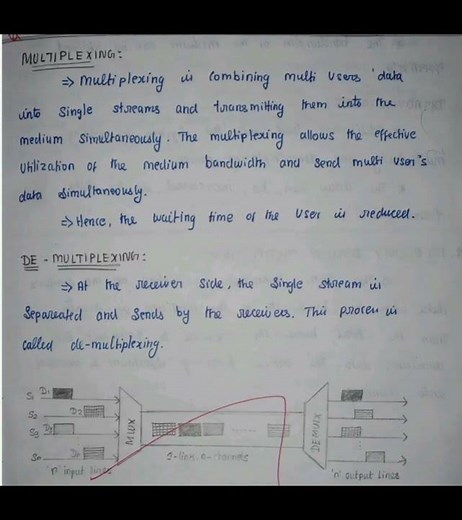 MULTIPLEXING:
⇒ Multiplexing is combining multi users' data
into single streams and transmitting them into the
medium simultaneously. The multiplexing allows the effective
utilization of the medium bandwidth and send multi user's
data simultaneously.
⇒ Hence, the waiting time of the user is reduced.
DE - MULTIPLEXING:
⇒ At the receiver side, the single stream is
separeated and sends by the receivers. This process is
called de-multiplexing.
S1 D1
S2 D2
S3 D3
Sn Dn
MUX
DEMUX
'n' input lines
'n' output lines